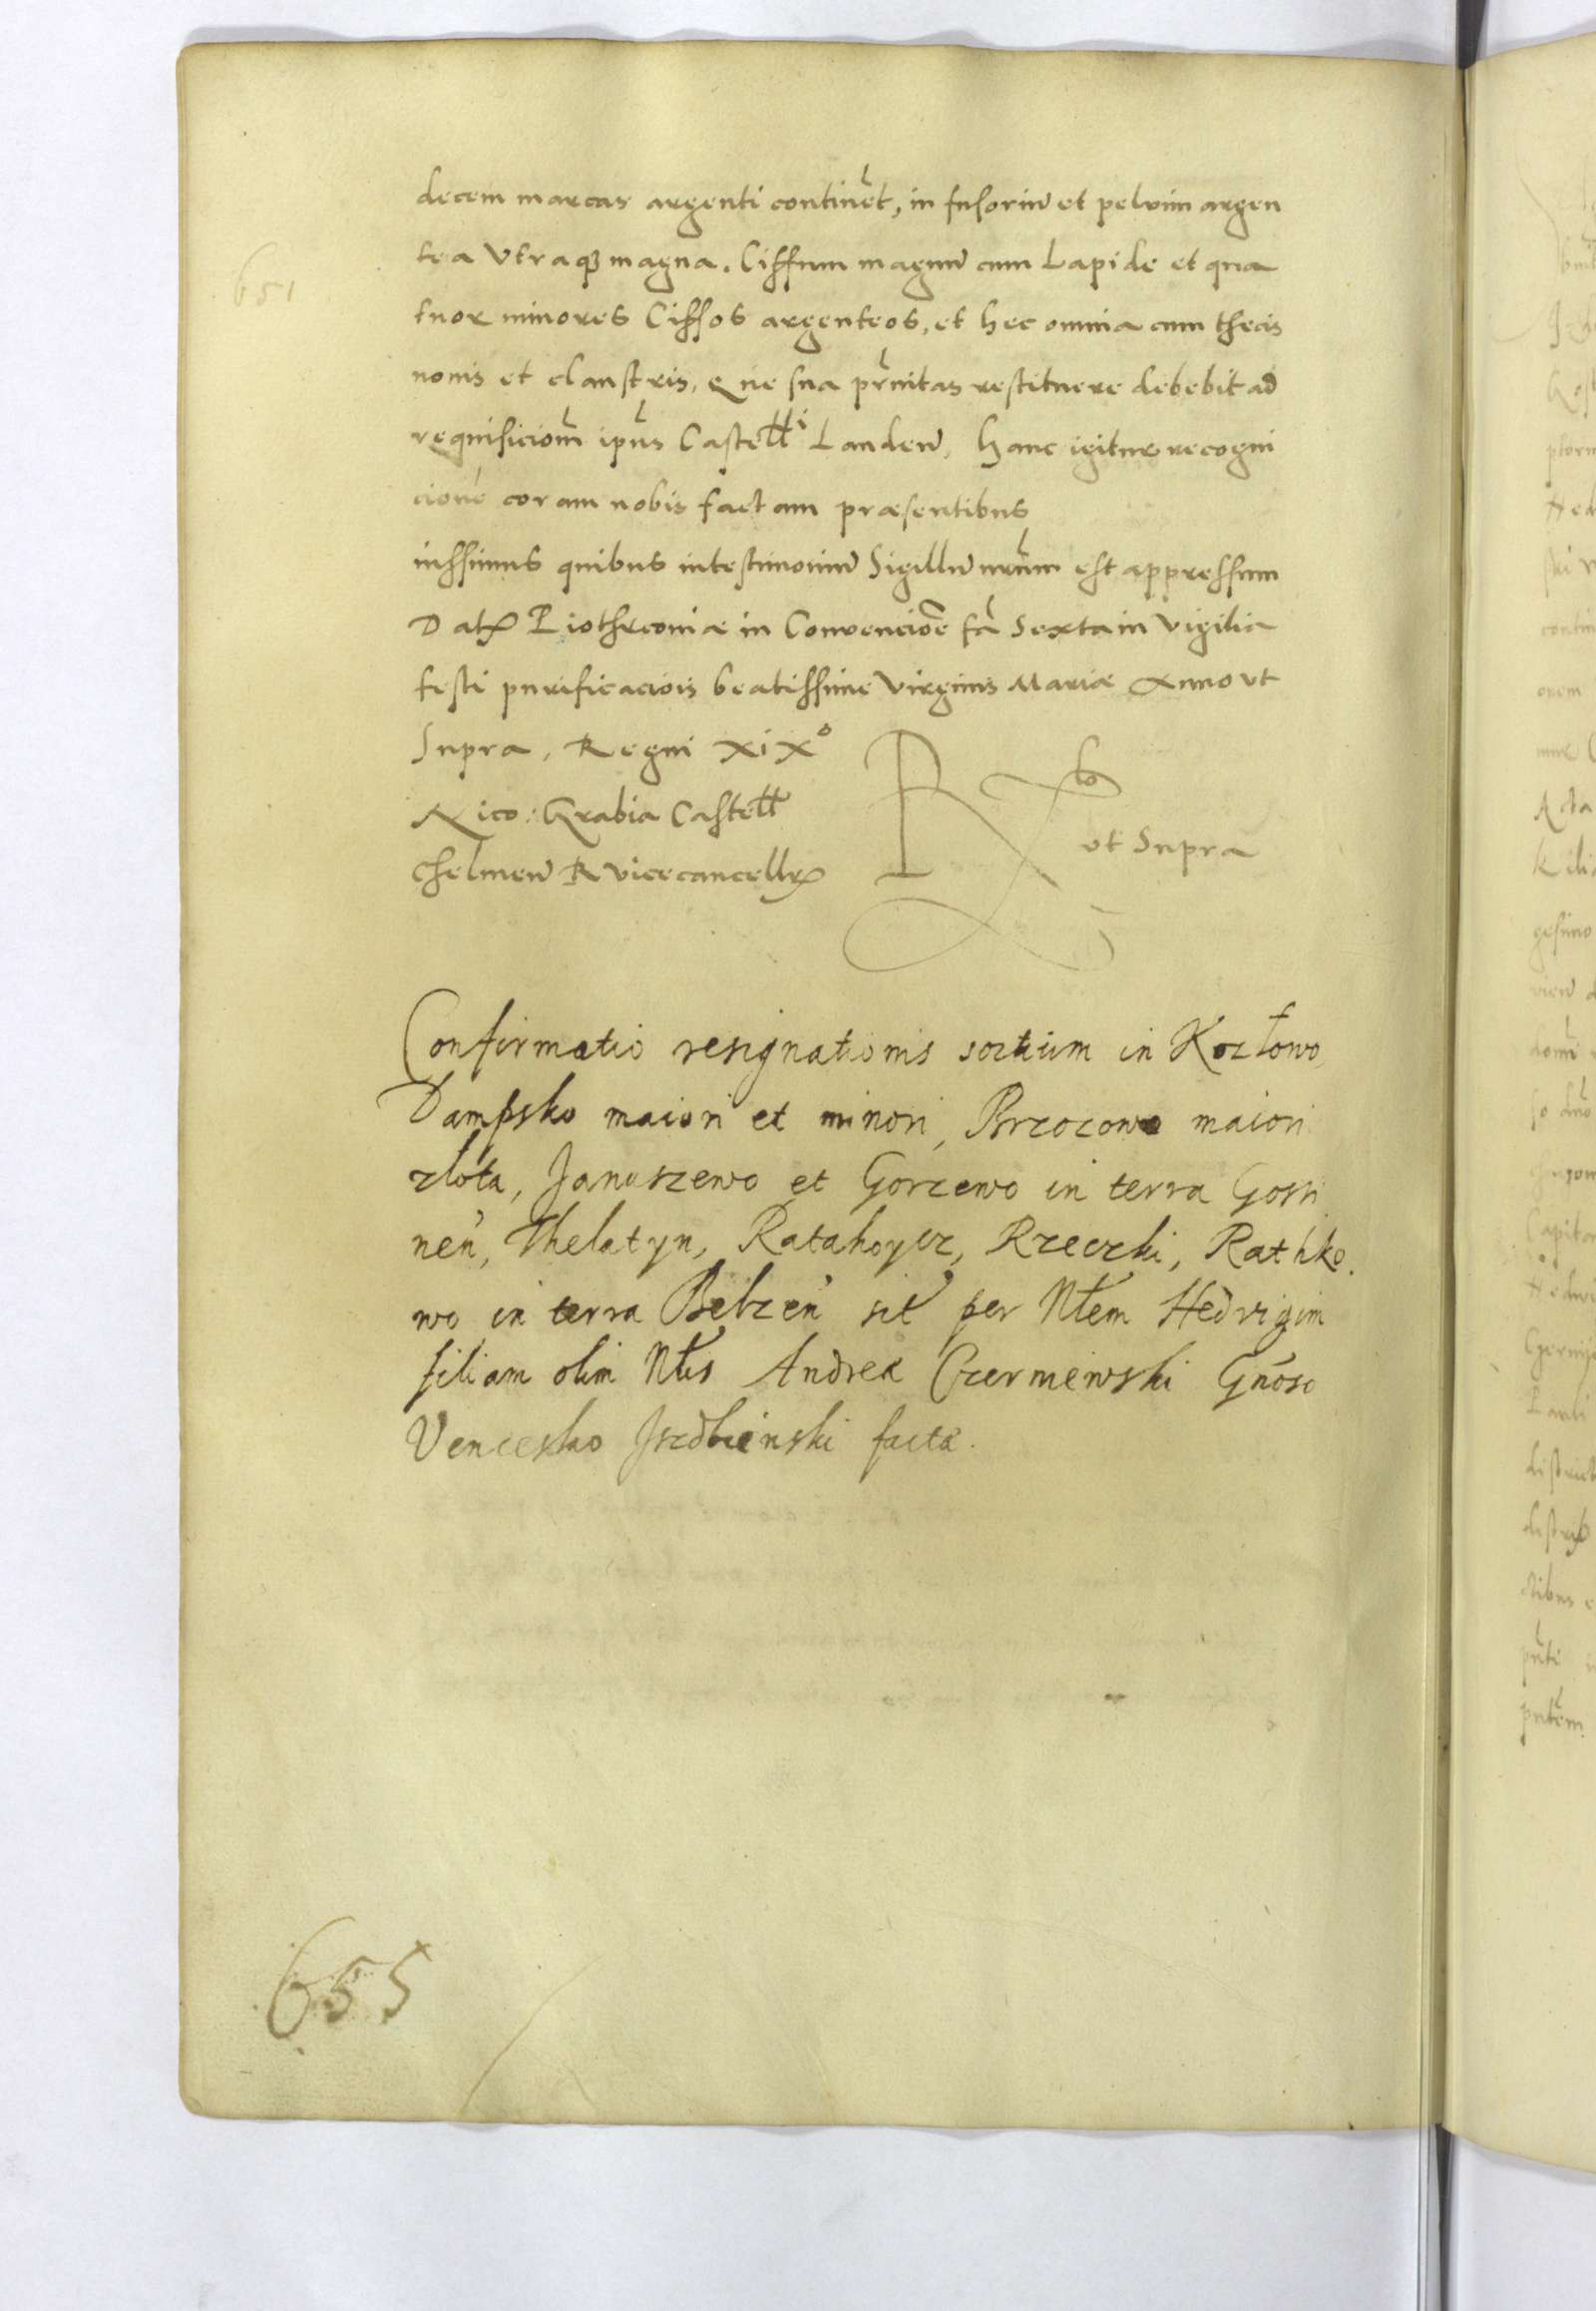 decem marcas argenti contin̄et, in fusoriū et pelvim argen
tea Vtraqȝ magna. Ciffum magnū cum Lapide et qua
651
tuor minores Ciffos argenteos, et hec omnia cum thecis
nouis et claustris, Que sua pr̄nitas restituere debebit ad
requisiciōm ipīus Castellⁱ Landeñ, Hanc igitur recogni
cionē coram nobis factam præsentibus
iussimus quibus intestimoniū Sigillū nr̄um est appressum
Datȝ Piothrconiæ in Convenciōe fā Sexta in vigilia
festi purificaciōis beatissime Virginis Mariæ Anno vt
Supra, Regni xixº
Nico: Grabia Castell
Chelmeñ R Vicecancellȝ
ut Supra
Confirmatio resignationis sortium in Kozłowo,
Dampsko maiori et minori, Brzozowo maiori
zlota, Januszewo et Gorzewo in terra Gosti
neń, Thelatyn, Ratahoycz, Rzeczki, Rathko
wo in terra Belzeń sit per Nłem Hedvigim
filiam olim Nłis Andreæ Czermiewski Gn̄oso
Venceslao Jszdbienski facta.
655